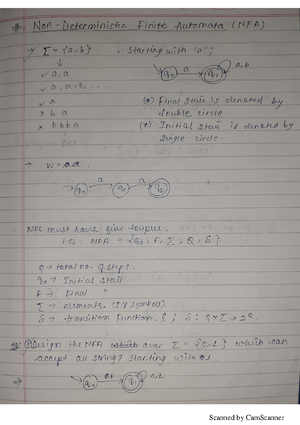 # Non-Deterministic Finite Automata (NFA)
→ Σ = {a,b} , starting with 'a';
↓
✓ a, a
✓ a, a, b, ...
✓ a
× b a
× b b b a
q0 a q1 a,b
(*) Final state is denoted by
double circle.
(*) Initial state is denoted by
single circle.
→ w = aa.
q0 a q1 a q2
NFC must have five
i.e. NFA = {q0, F, Σ, Q, δ}
Q → total no. of steps.
q0 → Initial state
F → Final "
Σ → elements. (I/P symbol)
δ → transition function. δ: Q×Σ → 2Q
Design the NFA over Σ = {0,1} which can
accept all string? starting with 01
⇒ 01 0,1
Scanned by CamScanner